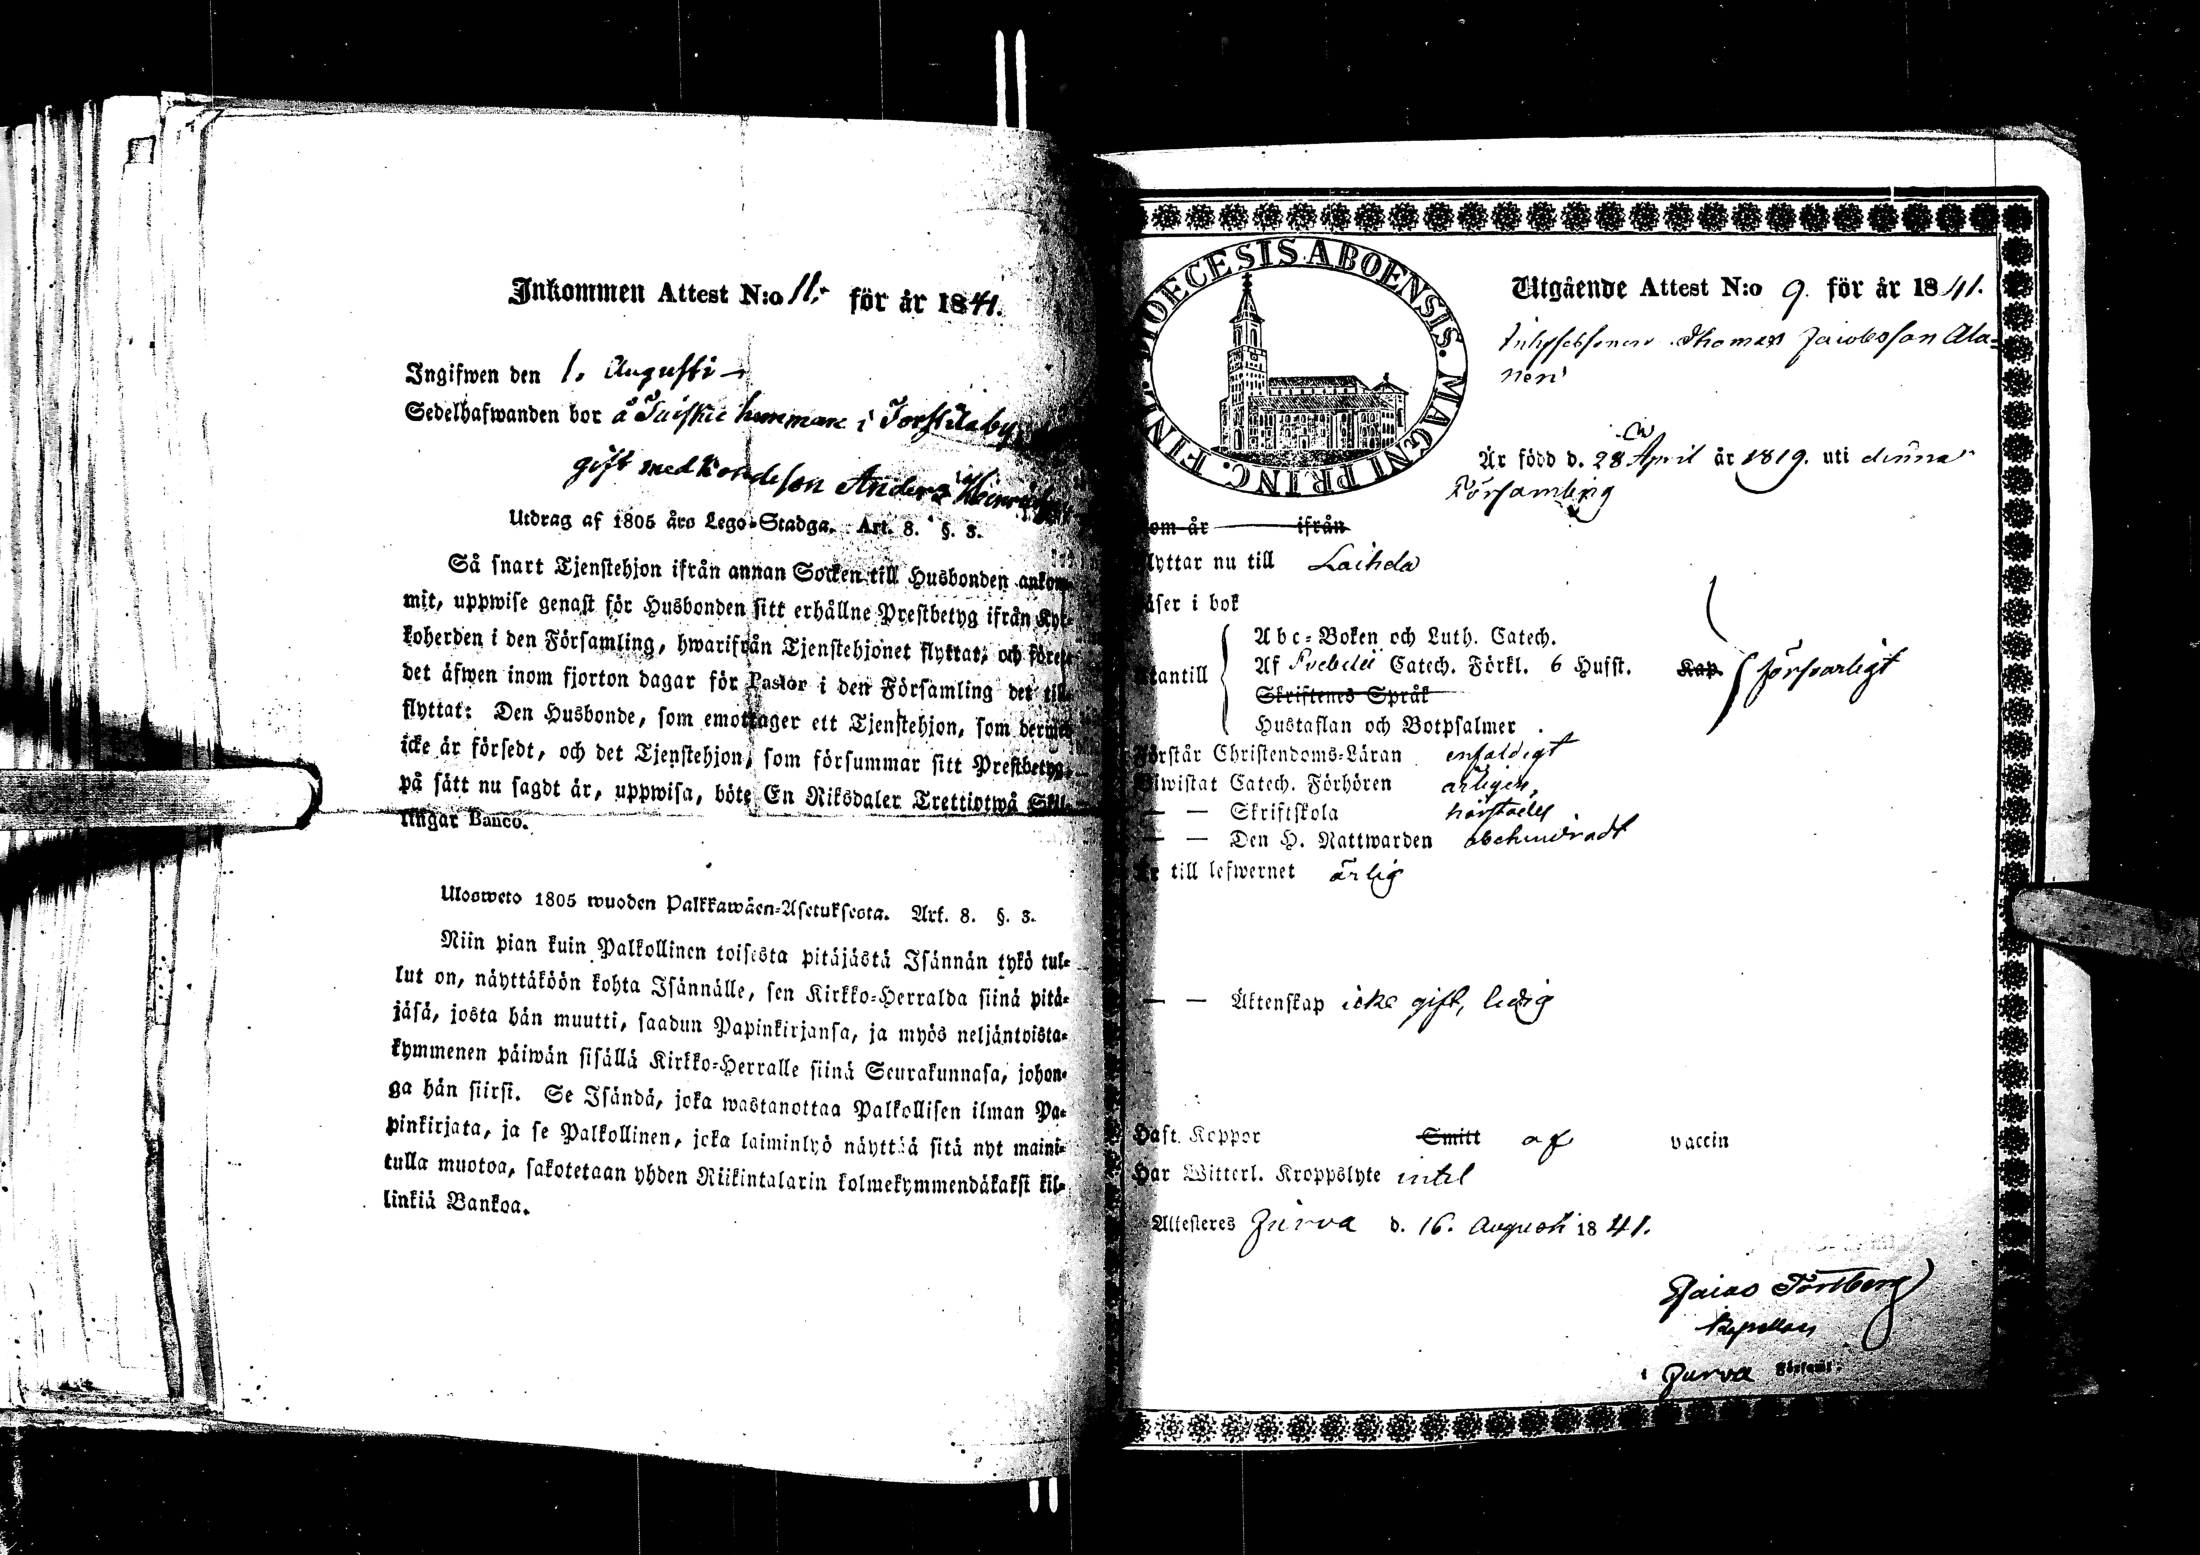 Inkommen Attest N:o 11. för år 1841.
Ingifwen den 1. Augusti
Sedelhafwanden bor å hemman i by
gift med Anders
Utdrag af 1805 års Lego-Stadga. Art. 8. §. 3.
Så snart Tjenstehjon ifrån annan Socken till Husbonden ankom-
mit, uppwise genast för Husbonden sitt erhållne Prestbetyg ifrån Kyr-
koherden i den Församling, hwarifrån Tjenstehjonet flyttat, och förete
det äfwen inom fjorton dagar för Pastor i den Församling det till-
flyttat: Den Husbonde, som emottager ett Tjenstehjon, som dermed
icke är försedt, och det Tjenstehjon, som försummar sitt Prestbetyg,
på sätt nu sagdt är, uppwisa, böte En Riksdaler Trettiotwå Skil-
lingar Banco.
Ulosweto 1805 wuoden Palkkawäen-Asetuksesta. Art. 8. §. 3.
Niin pian kuin Palkollinen toisesta pitäjästä Isännän tykö tul-
lut on, näyttäköön kohta Isännälle, sen Kirkko-Herralda siinä pitä-
jäsä, josta hän muutti, saadun Papinkirjansa, ja myös neljäntoista-
kymmenen päiwän sisällä Kirkko-Herralle siinä Seurakunnasa, johon-
ga hän siirsi. Se Isändä, joka wastanottaa Palkollisen ilman Pa-
pinkirjata, ja se Palkollinen, joka laiminlyö näyttää sitä nyt maini-
tulla muotoa, sakotetaan yhden Riikintalarin kolmekymmendäkaksi kil-
linkiä Bankoa.
DIOECESIS ABOENSIS. MAGNI PRINC. FINL.
Utgående Attest N:o 9. för år 1841.
Thomas Jacobsson Ala-
nen
Är född d. 28 April år 1819. uti denna
Församling
om år ifrån
lyttar nu till Laihela
äser i bok
tantill
Abc-Boken och Luth. Catech.
Af Svebelii Catech. Förkl. 6 Husst. Kap. försvarligt
Skriftenes Språk
Hustaflan och Botpsalmer
Förstår Christendoms-Läran enfaldigt
Biwistat Catech. Förhören årligen,
— — Skriftskola
— — Den H. Nattwarden obehindradt
Är till lefwernet ärlig
— — Äktenskap icke gift, ledig
Haft. Koppor Smitt af vaccin
Har Witterl. Kroppslyte intet
Attesteres Jurva d. 16. Augusti 1841.
Esaias Forsberg
Kapellan
i Jurva Församl.